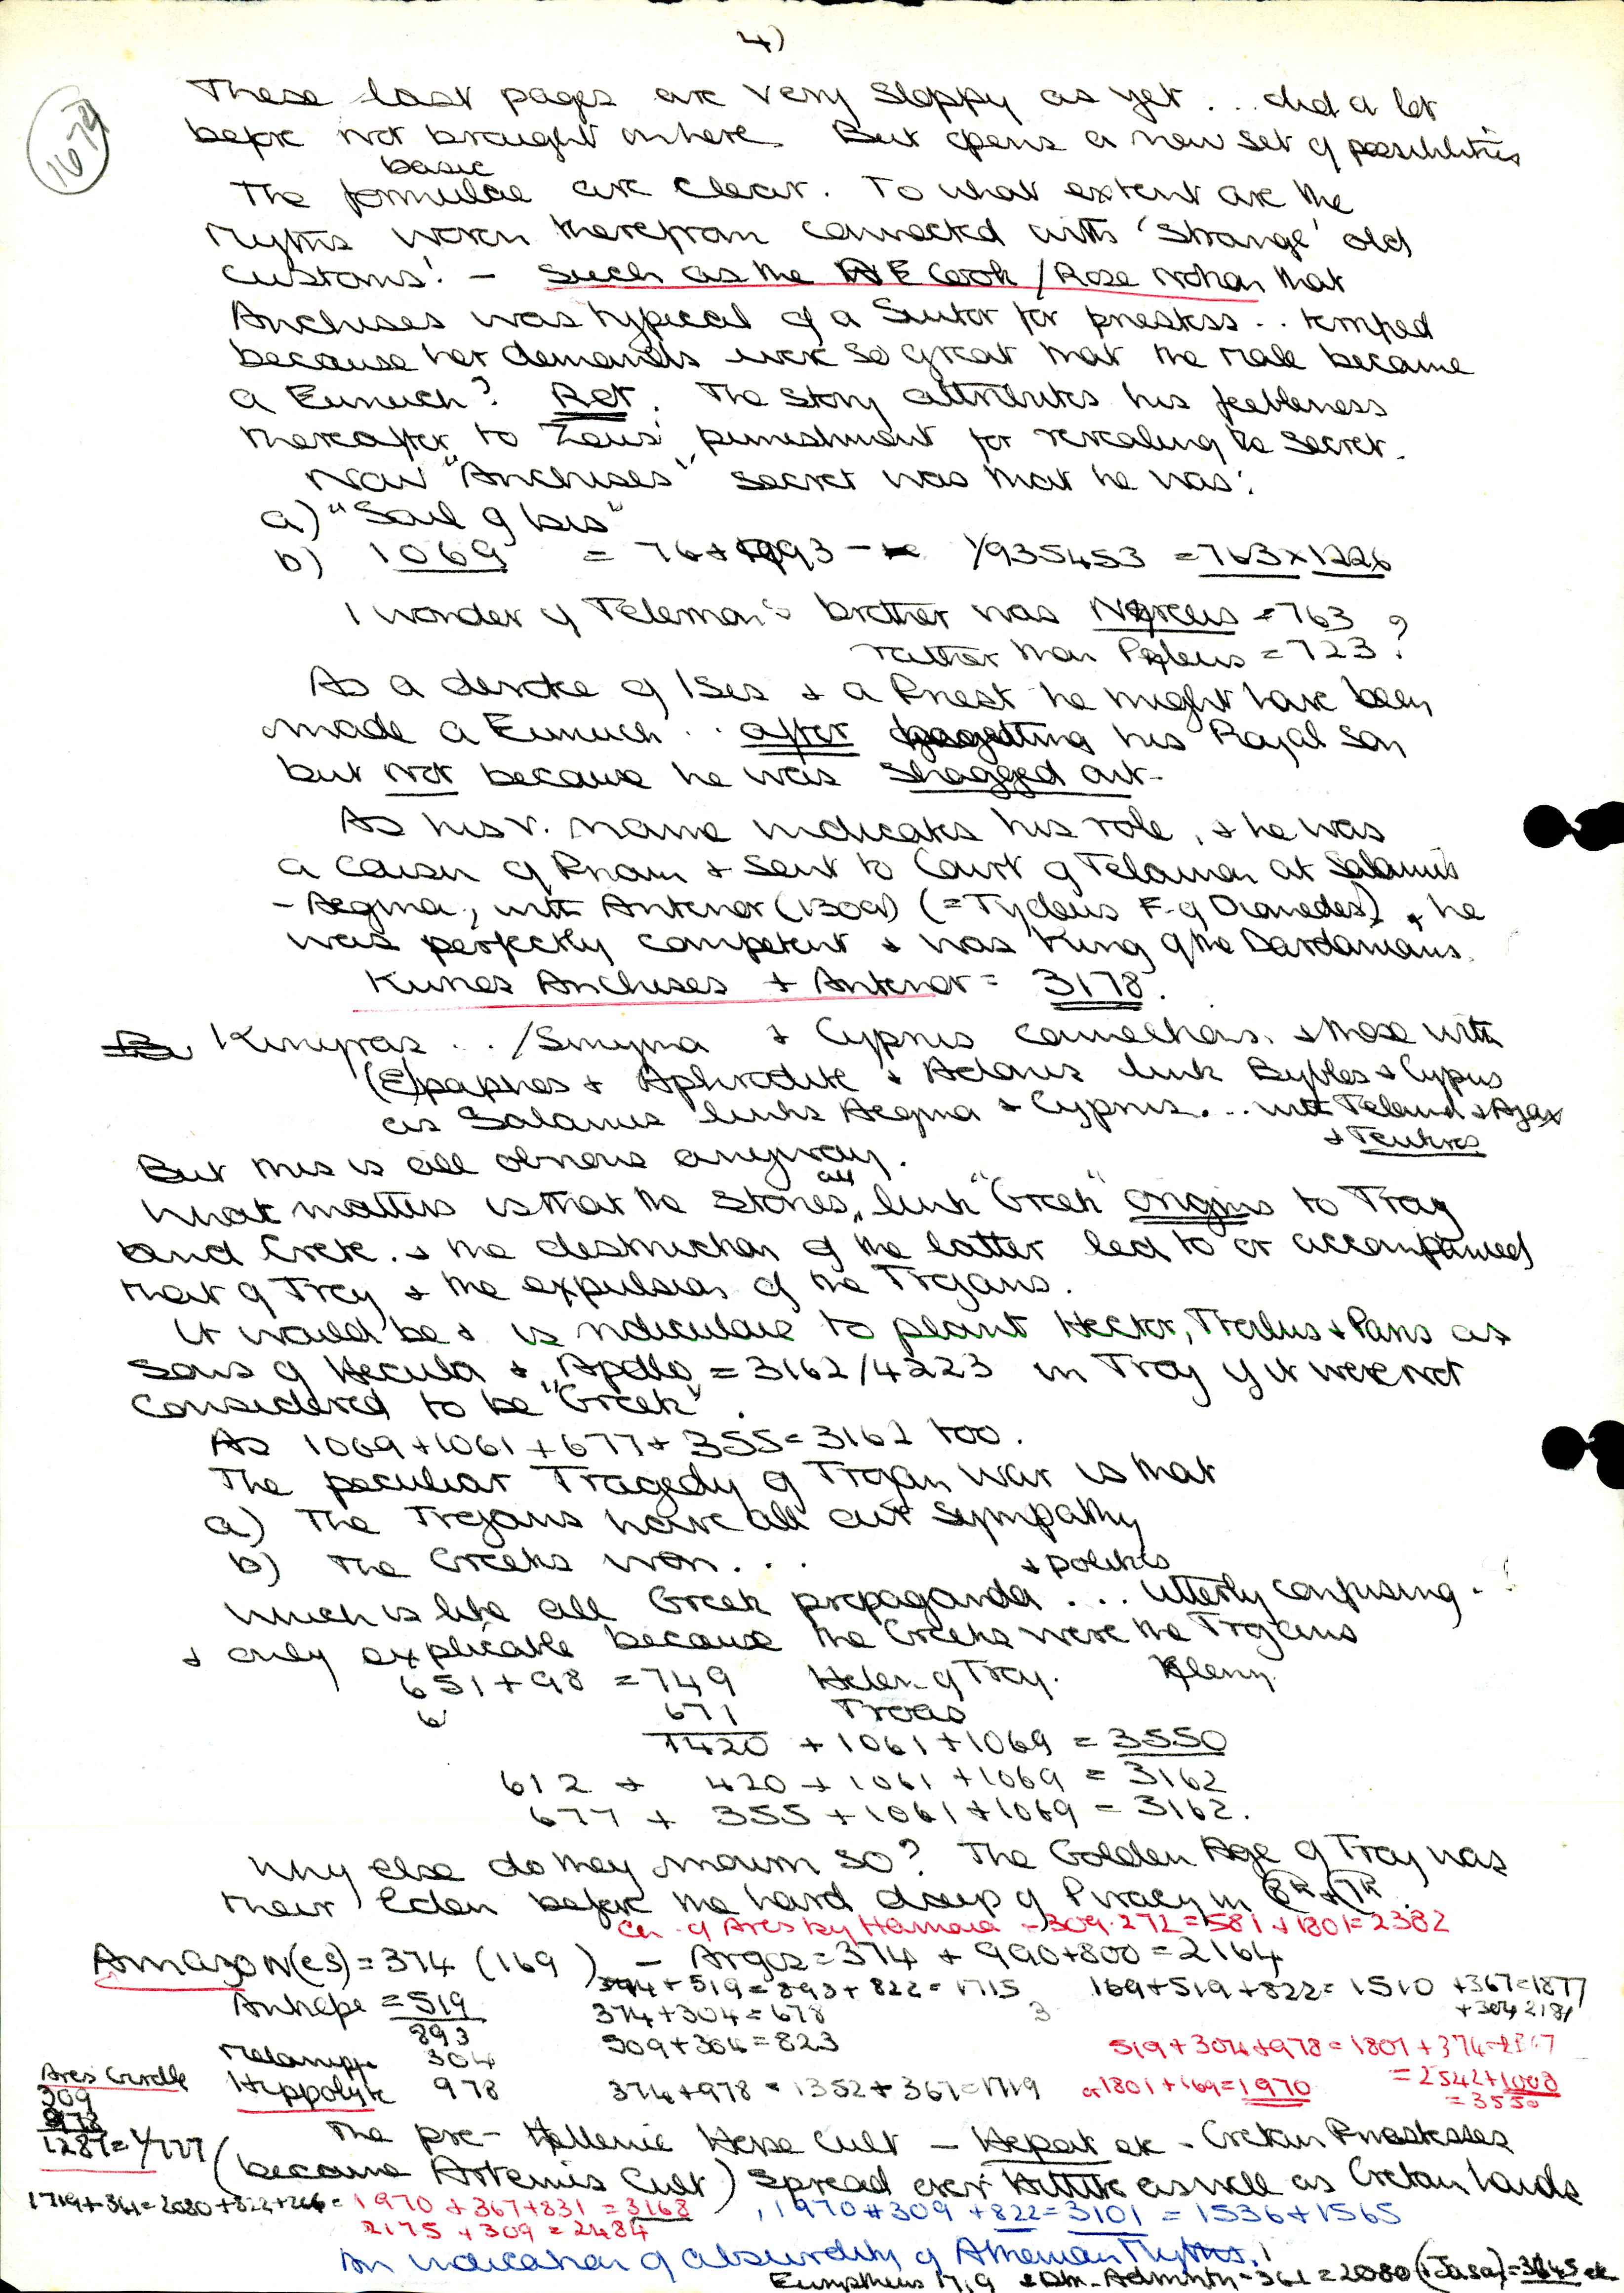 4)
1079
These last pages are very sloppy as yet .. did a lot
before not brought in here. But opens a new set of possibilities
The basic formulae are clear. To what extent are the
Myths woven therefrom connected with 'strange' old
customs! - Such as the A E Cook / Rose notion that
Anchises was typical of a Suitor for priestess .. temped
because her demands were so great that the male became
a Eunuch? Rot. The story attributes his feebleness
thereafter to Zeus' punishment for revealing the secret.
Now "Anchises" secret was that he was:
a) "Soul of Isis"
b) 1069 = 76 + 993 - 1/935453 = 763 x 1226
I wonder if Telemon's brother was Nereus = 763 ?
rather than Peleus = 723 ?
As a devotee of Isis + a Priest he might have been
made a Eunuch .. after begetting his Royal Son
but not because he was shagged out.
As his v. name indicates his role, + he was
a cousin of Priam + sent to Court of Telamon at Salamis
- Aegina, with Antenor (1309) (= Tydeus F. of Diomedes), he
was perfectly competent + was King of the Dardanians.
Kunes Anchises + Antenor = 3178.
Kinyras .. /Smyrna + Cyprus connections. + those with
(E)paphos + Aphrodite + Adonis link Byblos + Cyprus
as Salamis links Aegina + Cyprus ... with Telamon + Ajax
+ Teukros
But this is all obvious anyway.
What matters is that the stories all link "Greek" origins to Troy
and Crete. + the destruction of the latter led to or accompanied
that of Troy + the expulsion of the Trojans.
It would be + is ridiculous to plant Hector, Troilus + Paris as
sons of Hecuba + Apollo = 3162/4223 in Troy if it were not
considered to be "Greek".
As 1069 + 1061 + 677 + 355 = 3162 too.
The peculiar Tragedy of Trojan War is that
a) The Trojans have all our sympathy
b) The Greeks won ...
which is like all Greek propaganda + politics ... utterly confusing.
+ only explicable because the Greeks were the Trojans
651 + 98 = 749 Helen of Troy.
671 Troas
1420 + 1061 + 1069 = 3550
612 + 420 + 1061 + 1069 = 3162
677 + 355 + 1061 + 1069 = 3162.
Why else do they mourn so? The Golden Age of Troy was
their Eden before the hard days of Piracy in
of Ares by Harmonia - 309.272 = 581 + 1801 = 2382
Amazon(es) = 374 (169) - Argos = 374 + 990 + 800 = 2164
374 + 519 = 893 + 822 = 1715 169 + 519 + 822 = 1510 + 367 = 1877
Antiope = 519 374 + 304 = 678 3 + 304 2181
893 509 + 304 = 823
Melanippe 304 519 + 304 + 978 = 1801 + 374 = 2167
Hippolyte 978 374 + 978 = 1352 + 367 = 1719 or 1801 + 169 = 1970 = 2542 + 1008
= 3550
Ares Girdle
309
978
1287 = 1/777
The pre-Hellenic Hera Cult - Hepat etc - Cretan Priestesses
(became Artemis Cult) spread over Hittite as well as Cretan lands
1719 + 361 = 2080 + 822 + 266 = 1970 + 367 + 831 = 3168 , 1970 + 309 + 822 = 3101 = 1536 + 1565
2175 + 309 = 2484
An indication of absurdity of Athenian Myths!
Eurystheus 1719 + Dtr. Admete - 361 = 2080